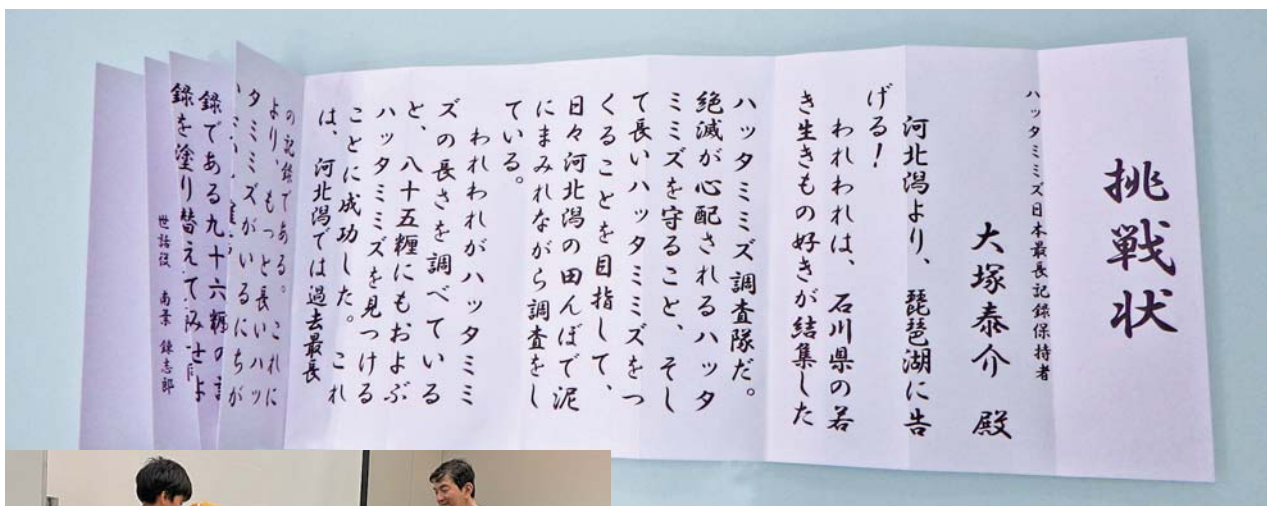 挑戦状
ハッタミミズ日本最長記録保持者
大塚泰介 殿
河北潟より、琵琶湖に告
げる！
われわれは、石川県の若
き生きもの好きが結集した
ハッタミミズ調査隊だ。
絶滅が心配されるハッタ
ミミズを守ること、そし
て長いハッタミミズをつ
くることを目指して、
日々河北潟の田んぼで泥
にまみれながら調査をし
ている。
われわれがハッタミミ
ズの長さを調べている
と、八十五糎にもおよぶ
ハッタミミズを見つける
ことに成功した。これ
は、河北潟では過去最長
の記録である。これに
より、もっと長いハッ
タミミズがいるにちが
録である九十六糎の
録を塗り替えてみせよ
世話役 南葉 錬志郎